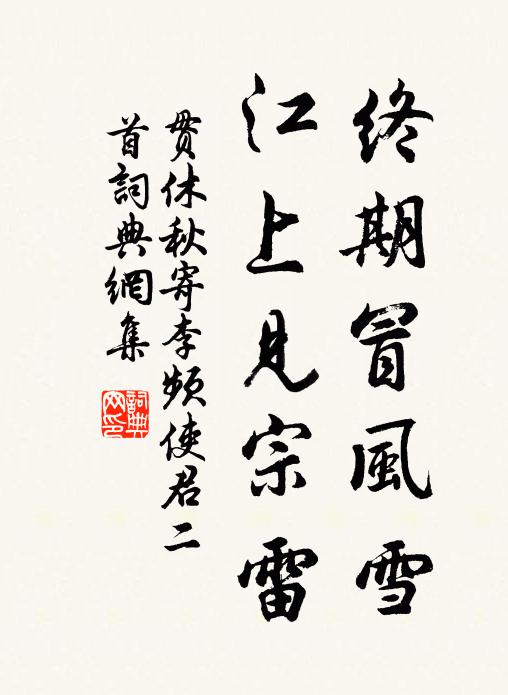 終期冒風雪
江上見宗雷
貫休秋寄李頻使君二
首詞典網集
詞典
网印